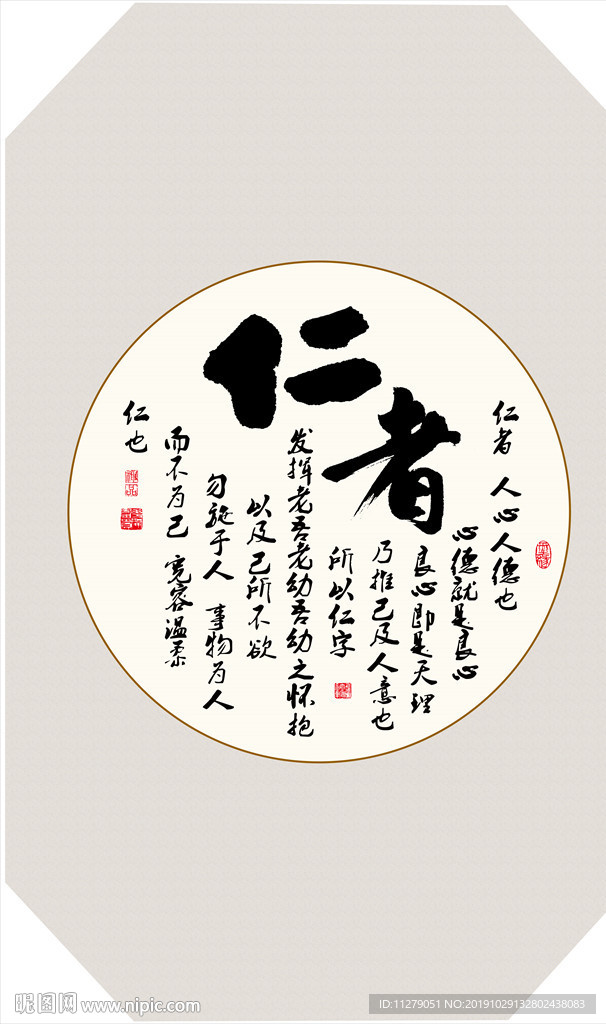 仁者
仁者 人心人德也
心德就是良心
良心即是天理
乃推己及人意也
所以仁字
发挥老吾老幼吾幼之怀抱
以及己所不欲
勿施于人 事物为人
而不为己 宽容温柔
仁也
昵图网 www.nipic.com
ID:11279051 NO:20191029132802438083